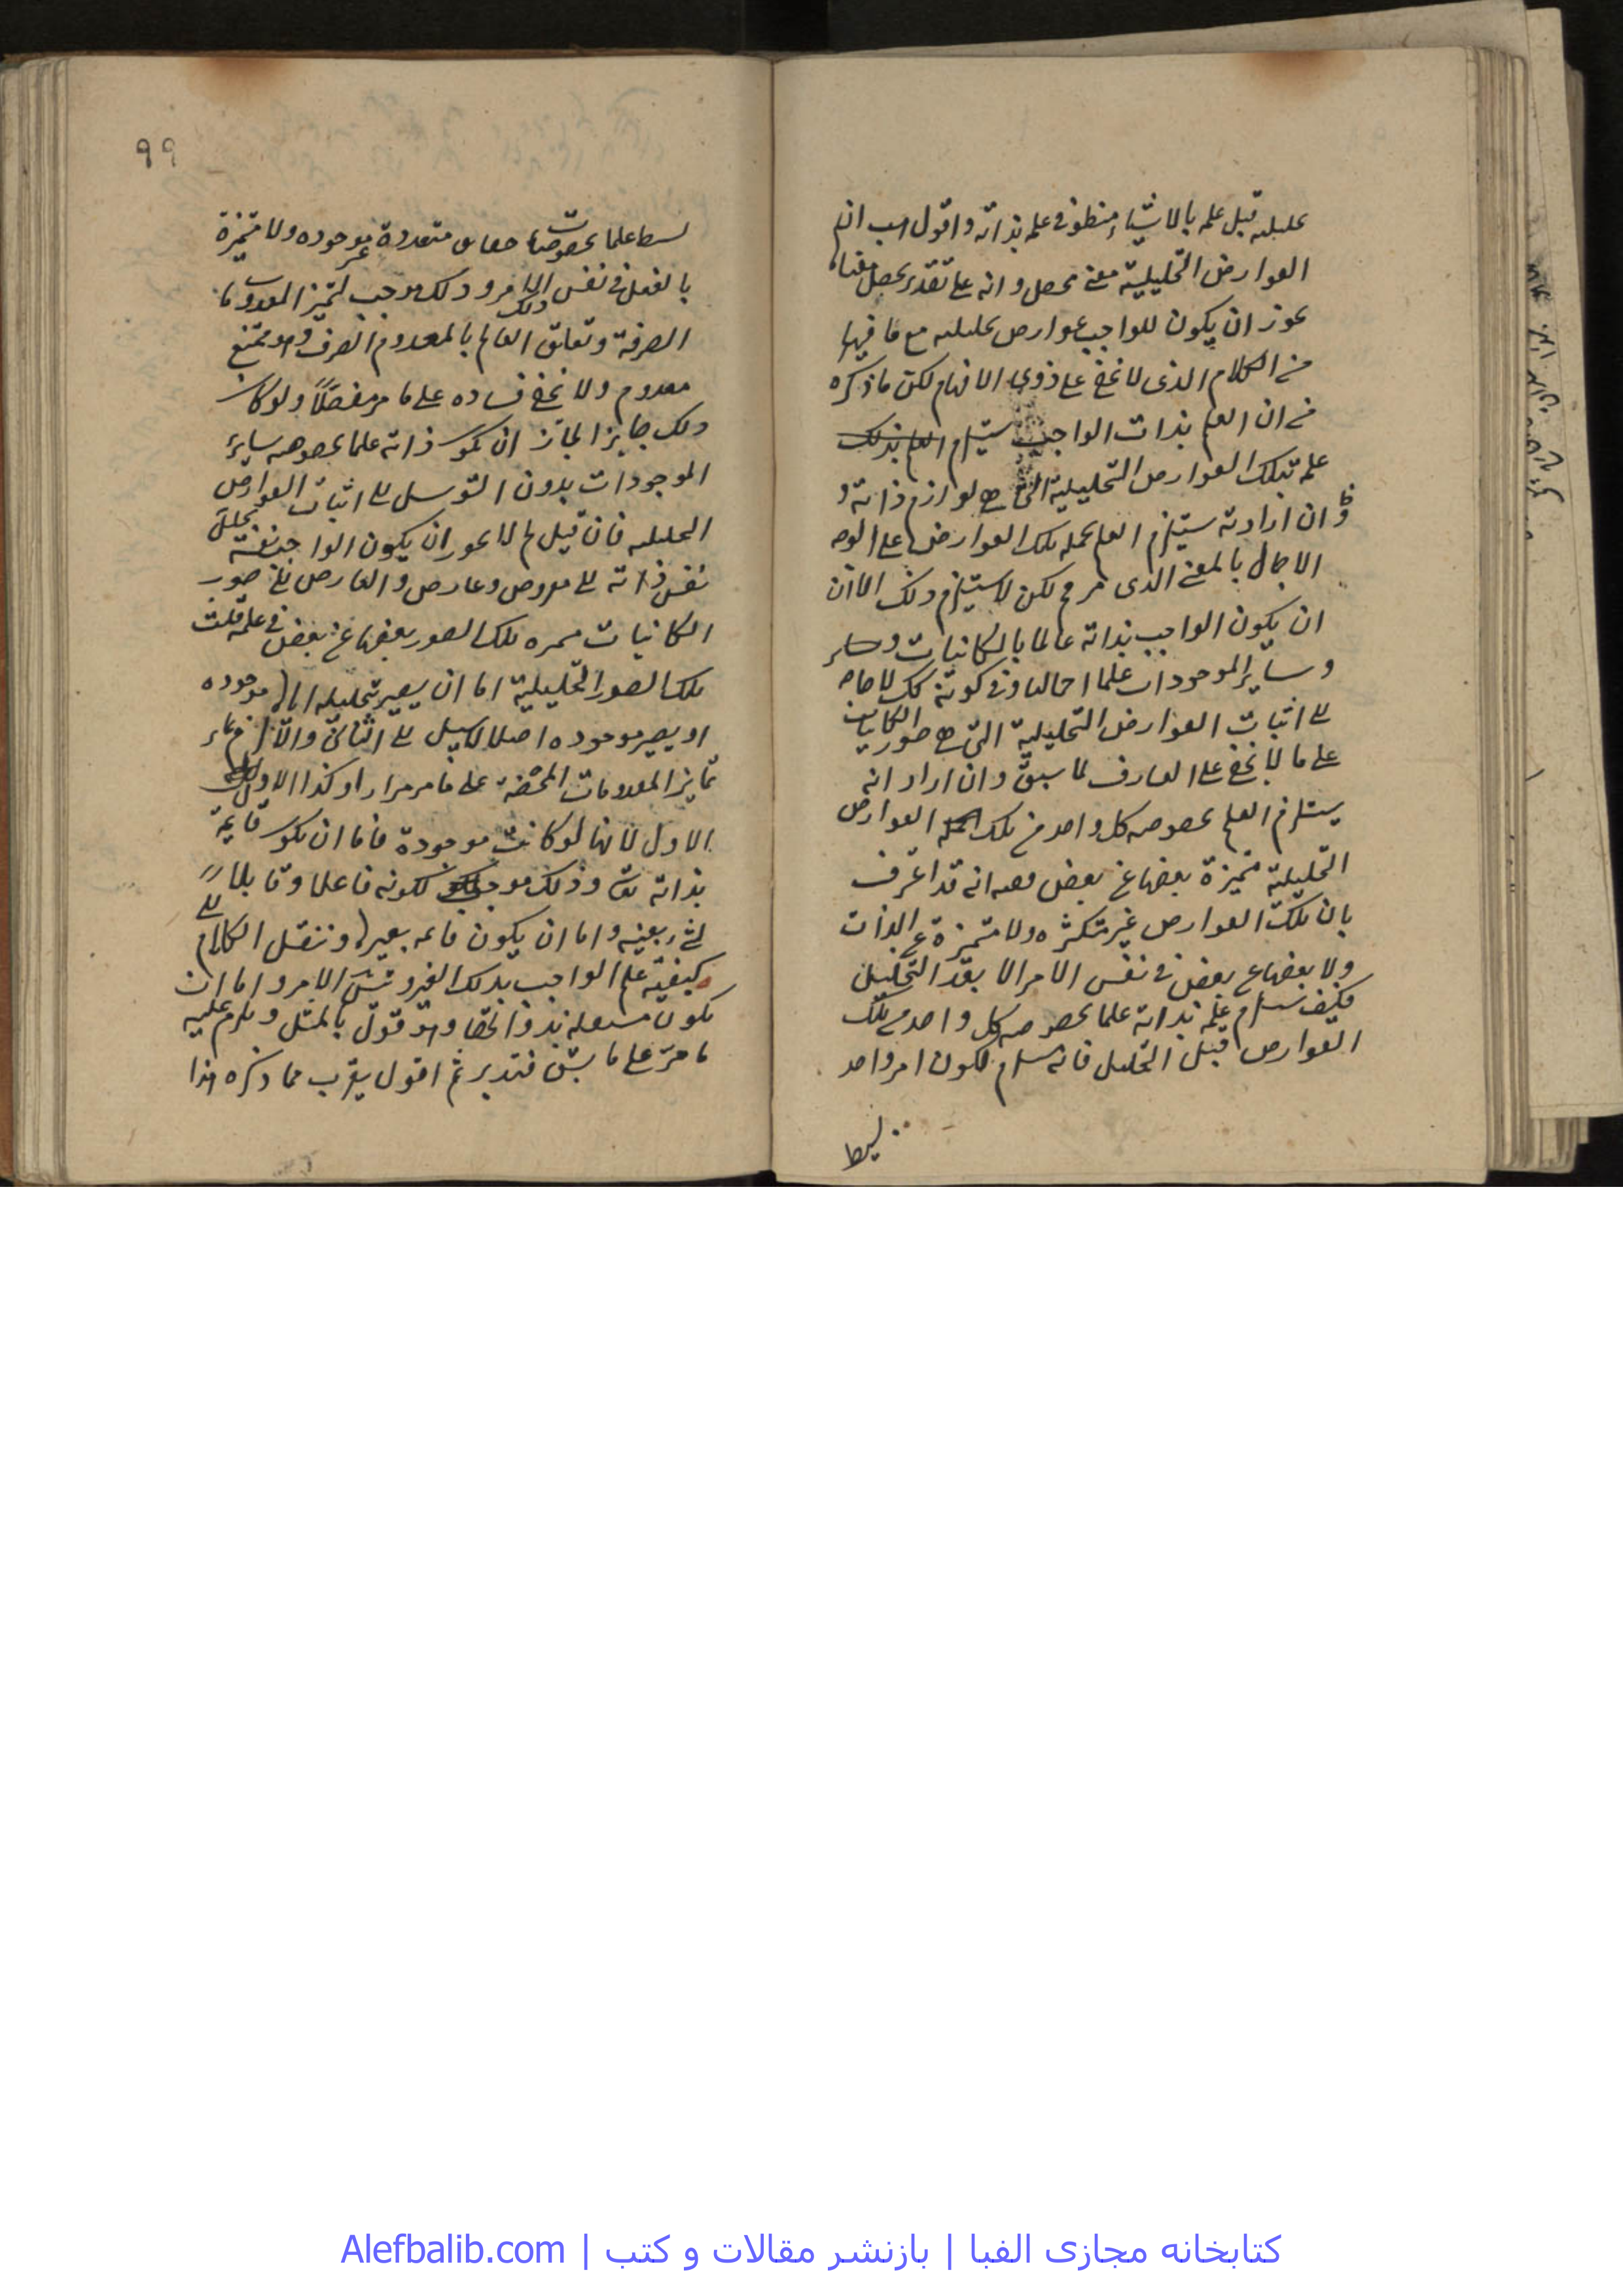 قبل علمه بالاشياء منطو في علمه بذاته واقول اهب ان
العوارض التحليلية معنى محصل وانه على تقدير تحصل معناه
يجوز ان يكون للواجب عوارض تحليليه مع ما فيها
من الكلام الذى لا يخفى على ذوى الافهام لكن ما ذكره
من ان العلم بذات الواجب يستلزم العلم بذلك
علمه بتلك العوارض التحليلية التى هي لوازم ذاته و
ان اراد به يستلزم العلم بجمله تلك العوارض على الوجه
الاجمالى بالمعنى الذى مر فى لكن لا يستلزم ذلك الا ان
ان يكون الواجب بذاته عالما بالكائنات وساير
وساير الموجودات علما اجماليا وفى كونه كك لا حاجه
الى اثبات العوارض التحليلية التى هي صور الكاينات
على ما لا يخفى على العارف لما سبق وان اراد انه
يستلزم العلم بخصوصه كل واحد من تلك العوارض
التحليلية متميزة بعضها عن بعض ففيه انه قد اعترف
بان تلك العوارض غير متكثره ولا متميزة عن الذات
ولا بعضها عن بعض فى نفس الامر الا بعد التحليل
فكيف يستلزم علمه بذاته علما بخصوصه كل واحد من تلك
العوارض قبل التحليل فانه يستلزم لكون امر واحد
بسيط
٩٩
بسيط علما بخصوصيات حقايق متعددة غير موجوده ولا متميزة
بالفعل فى نفس الامر وذلك يوجب لتميز المعدومات
الصرفة وتعلق العالم بالمعدوم الصرف وهو ممتنع
معدوم ولا يخفى فساده على ما مر مفصلاً ولو كان
ذلك جايز الجاز ان يكون ذاته علما بخصوصه ساير
الموجودات بدون التوسل الى اثبات العوارض
التحليليه فان قيل لم لا يجوز ان يكون الواجب بنفسه يحلل
نفس ذاته الى معروض وعارض والعارض الى صور
الكائنات متميزه تلك الصور بعضها عن بعض فى علمه قلت
تلك الصور التحليلية اما ان يصير بتحليله اياها موجوده
او يصير موجوده اصلا لا سبيل الى الثانى والا لزم
تمايز المعدومات المحضة على ما مر مرارا وكذا الاول
الاول لانها لو كانت موجودة فاما ان يكون قايمة
بذاته تع وذلك موجب لكونه فاعلا وقابلاً
لشىء بعينه واما ان يكون قائمه بغيره وننقل الكلام الى
كيفية علم الواجب بذلك الغير وتس الامر واما ان
يكون مستقله بذواتها وهو قول بالمثل ويلزم عليه
ما مر على ما سبق فتدبر ثم اقول يقرب مما ذكره هذا
کتابخانه مجازی الفبا | بازنشر مقالات و کتب | Alefbalib.com